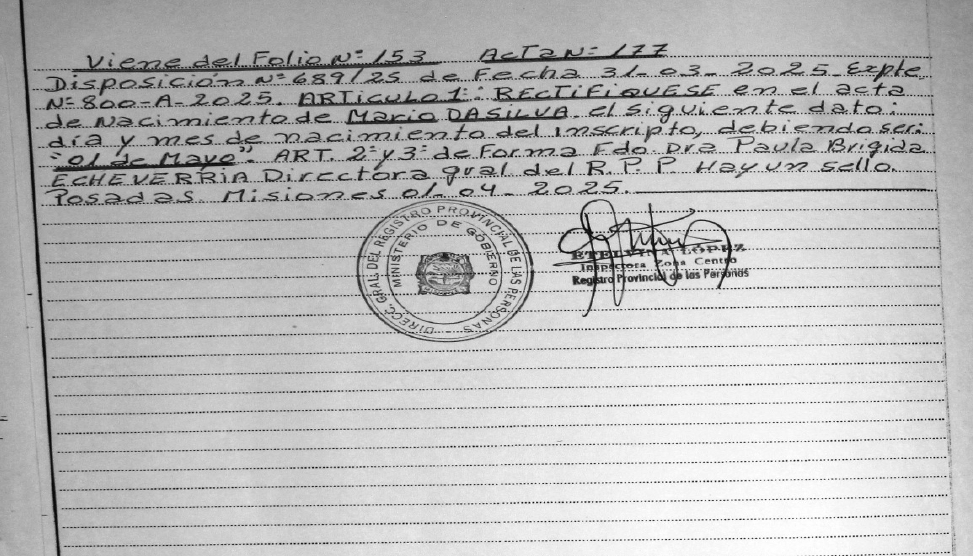 Viene del Folio Nº 153 Acta Nº 177
Disposición Nº 689/25 de Fecha 31-03-2025 Expte
Nº 800-A-2025. ARTICULO 1º: RECTIFIQUESE en el acta
de Nacimiento de Mario DASILVA el siguiente dato:
día y mes de nacimiento del inscripto, debiendo ser:
"01 de Mayo". ART. 2º y 3º de Forma Fdo Dra Paula Brigida
ECHEVERRIA Directora gral del R.P.P. Hay un sello.
Posadas Misiones 01-04-2025.
DIRECC. GRAL. DEL REGISTRO PROVINCIAL DE LAS PERSONAS
MINISTERIO DE GOBIERNO
ETELVINA LÓPEZ
Inspectora Zona Centro
Registro Provincial de las Personas